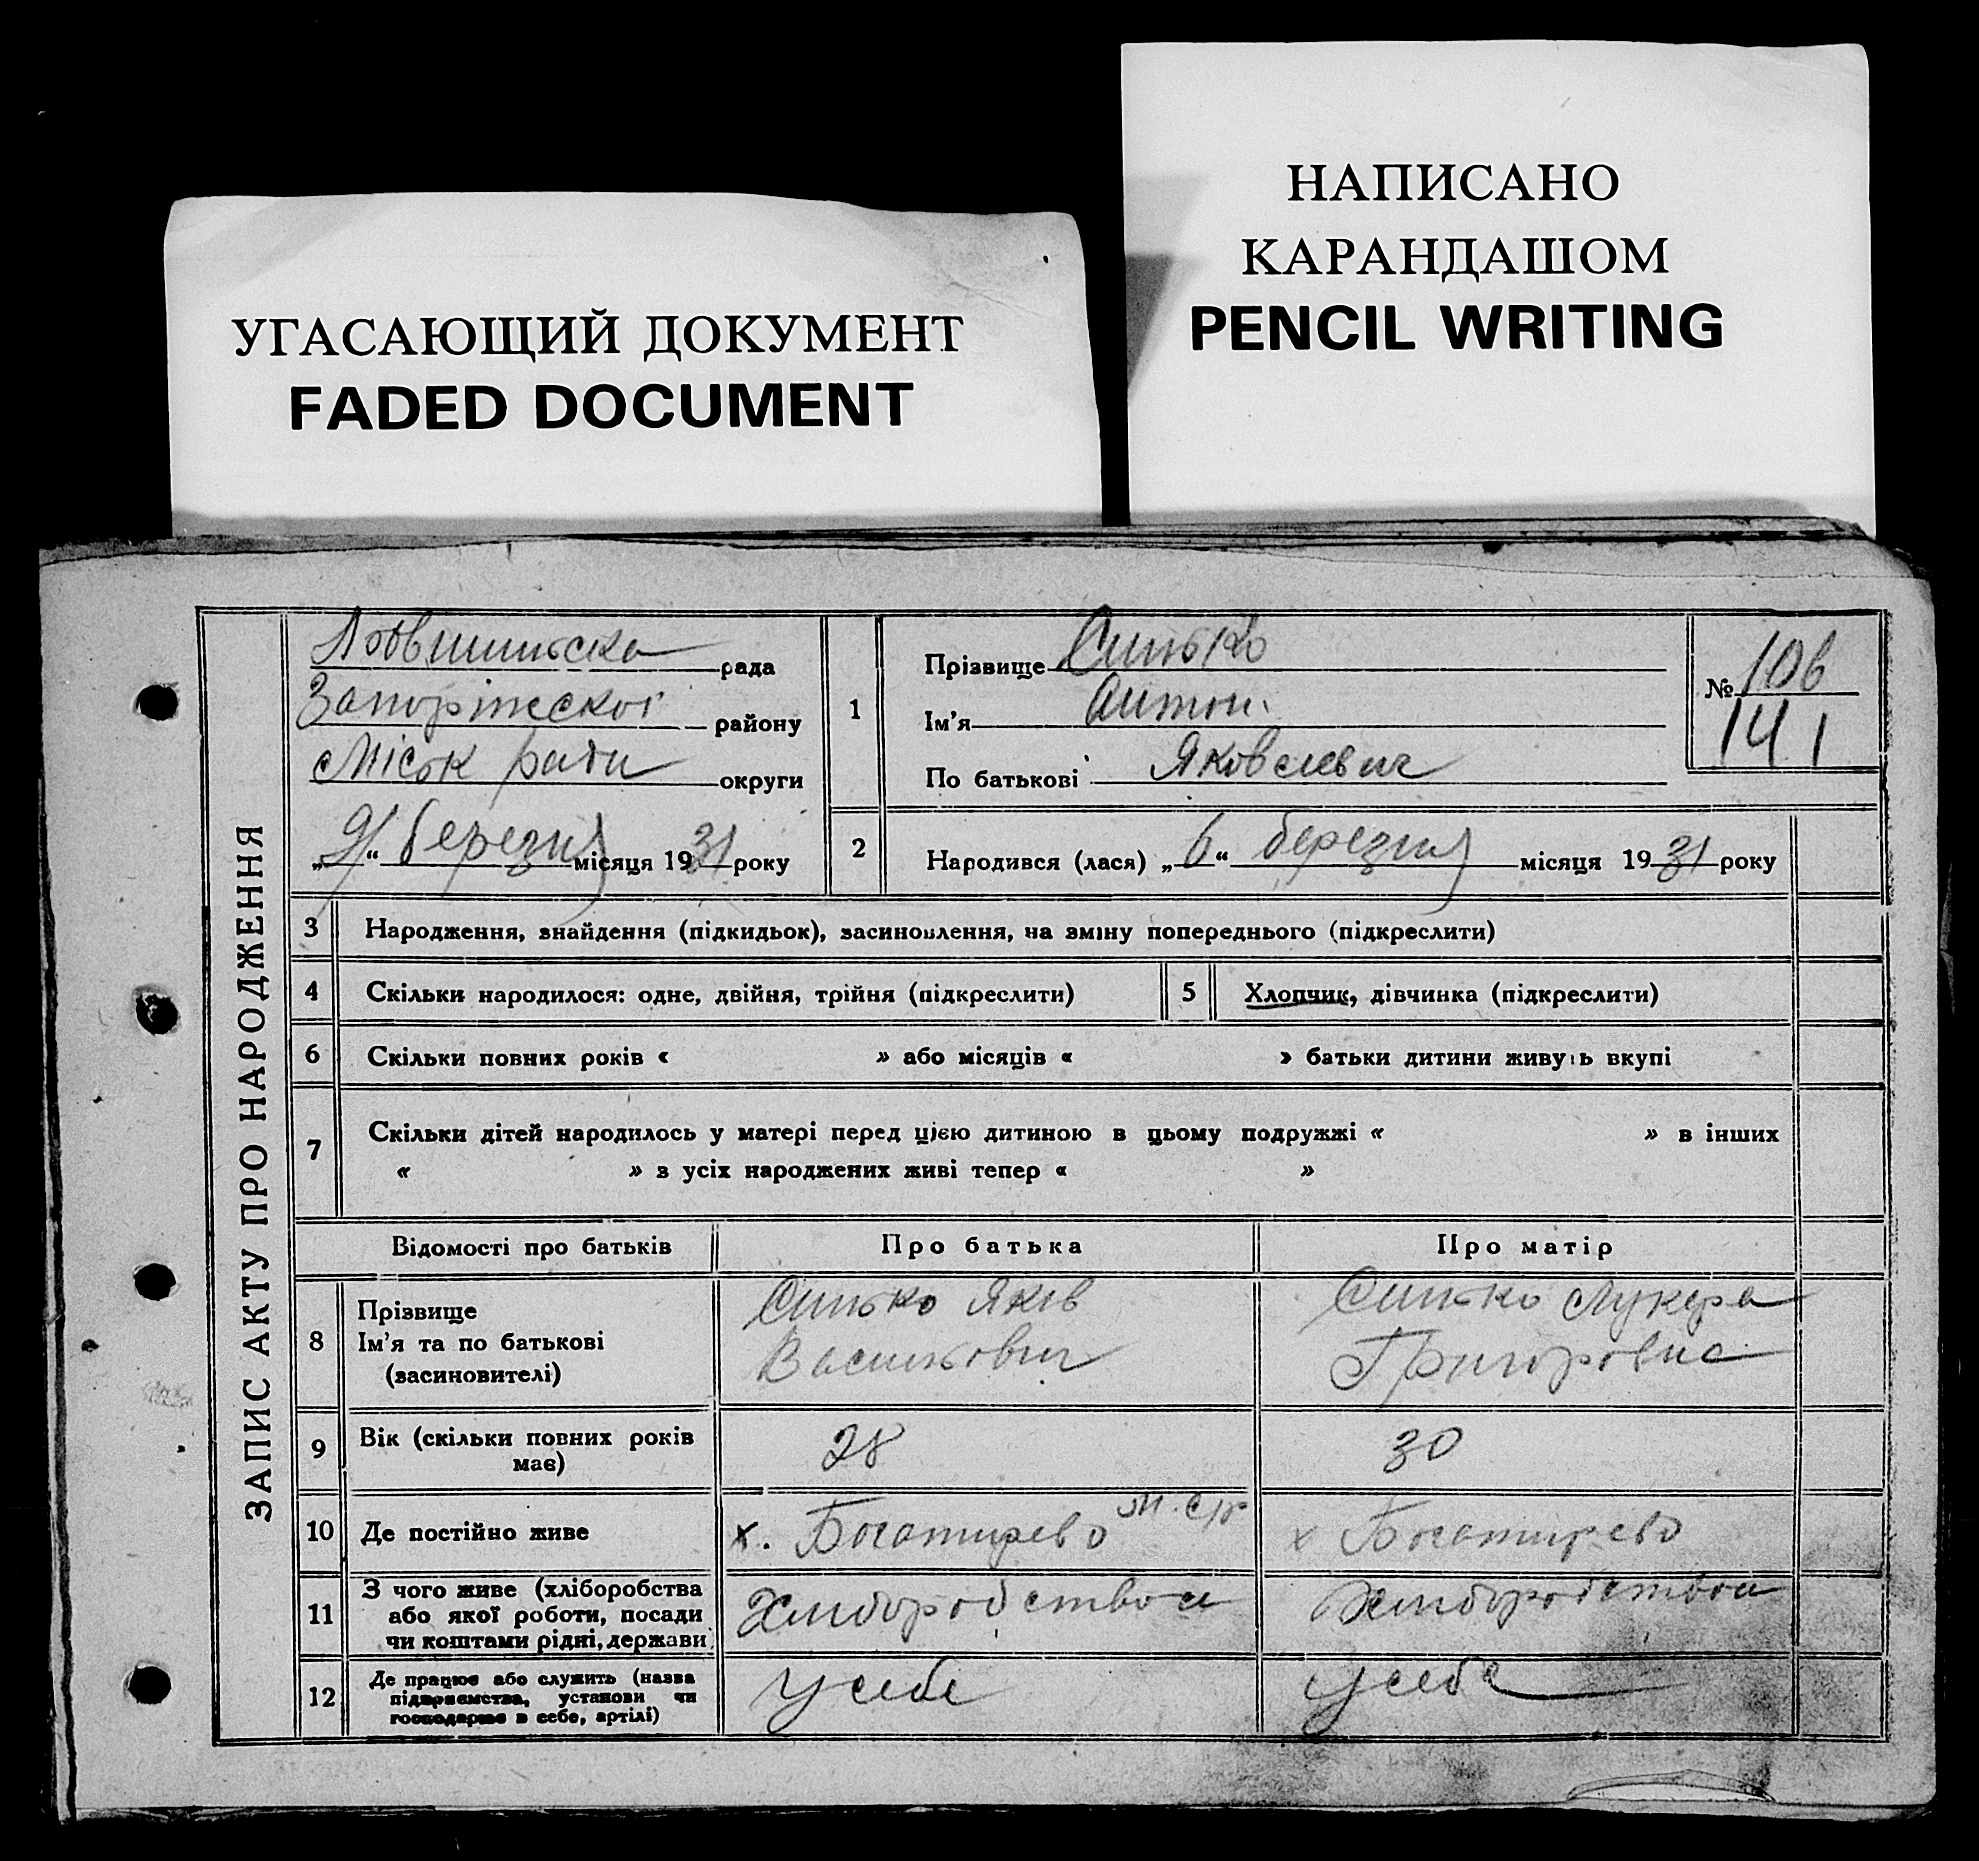 НАПИСАНО
КАРАНДАШОМ
PENCIL WRITING
УГАСАЮЩИЙ ДОКУМЕНТ
FADED DOCUMENT
ЗАПИС АКТУ ПРО НАРОДЖЕННЯ
рада
Запоріжської району
Міськ ради округи
„9“ березня місяця 1931 року
1
Прізвище Синько
Ім'я Антон.
По батькові Яковлевич
№ 106
141
2
Народився (лася) „6“ березня місяця 1931 року
3 Народження, знайдення (підкидьок), засиновлення, на зміну попереднього (підкреслити)
4 Скільки народилося: одне, двійня, трійня (підкреслити)
5 Хлопчик, дівчинка (підкреслити)
6 Скільки повних років « » або місяців « » батьки дитини живуть вкупі
7 Скільки дітей народилось у матері перед цією дитиною в цьому подружжі « » в інших
« » з усіх народжених живі тепер « »
Відомості про батьків Про батька Про матір
8 Прізвище
Ім'я та по батькові
(засиновителі)
Синько Яків
Василкович
Синько Лукера
Григоровна
9 Вік (скільки повних років
має)
28
30
10 Де постійно живе
х. Богатирево
х Богатирево
11 З чого живе (хліборобства
або якої роботи, посади
чи коштами рідні, держави)
Хліборобством
Хліборобством
12 Де працює або служить (назва
підприємства, установи чи
господарює в себе, артілі)
У себе
У себе